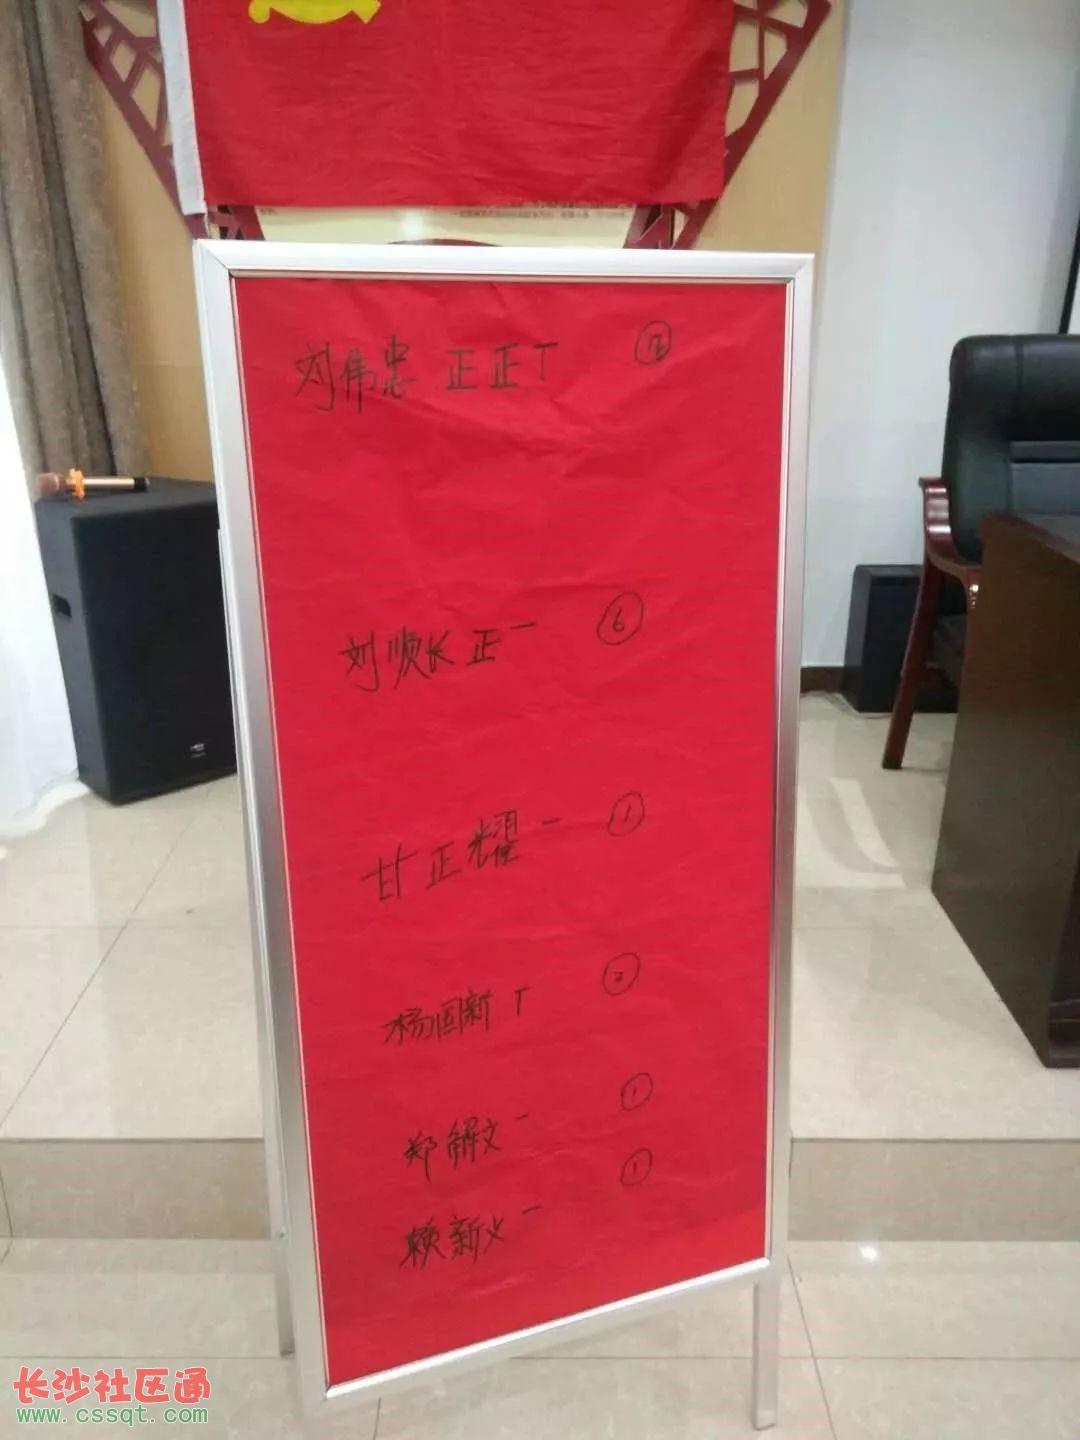 刘伟忠 正正丅 ⑫
刘顺长 正一 ⑥
甘正耀 一 ①
杨国新 丅 ②
郑解文 一 ①
赖新义 一 ①
长沙社区通
www.cssqt.com